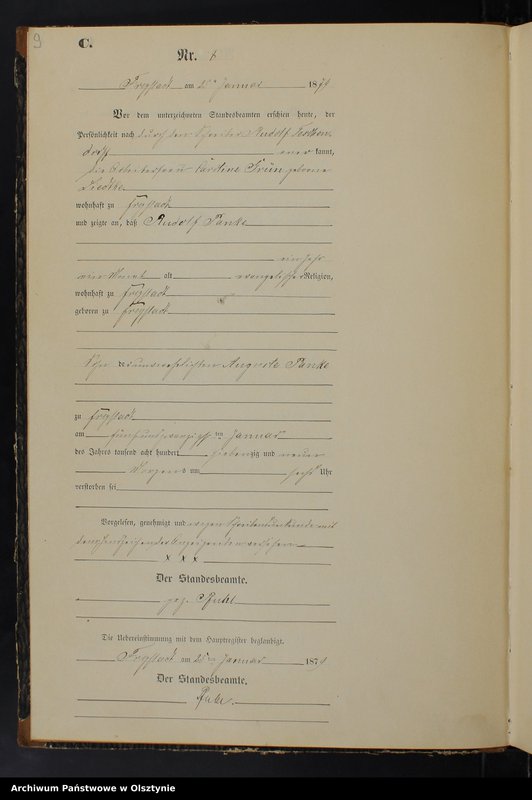 9
C.
Nr.
Freystadt am 25ten Januar 1879
Vor dem unterzeichneten Standesbeamten erschien heute, der
Persönlichkeit nach durch den Schreiber Rudolf
kannt,
die Arbeiterfrau Caroline Grün geborene
wohnhaft zu Freystadt
und zeigte an, daß Rudolf Panke
ein Jahr
ein Monat alt evangelischer Religion,
wohnhaft zu Freystadt
geboren zu Freystadt
Sohn der unverehelichten Auguste Panke
zu Freystadt
am fünfundzwanzigsten Januar
des Jahres tausend acht hundert siebenzig und neun
Morgens um sechs Uhr
verstorben sei
Vorgelesen, genehmigt und wegen Schreibensunkunde mit
x x x
Der Standesbeamte.
gez.
Die Uebereinstimmung mit dem Hauptregister beglaubigt.
Freystadt am 25ten Januar 1879
Der Standesbeamte.
Archiwum Państwowe w Olsztynie